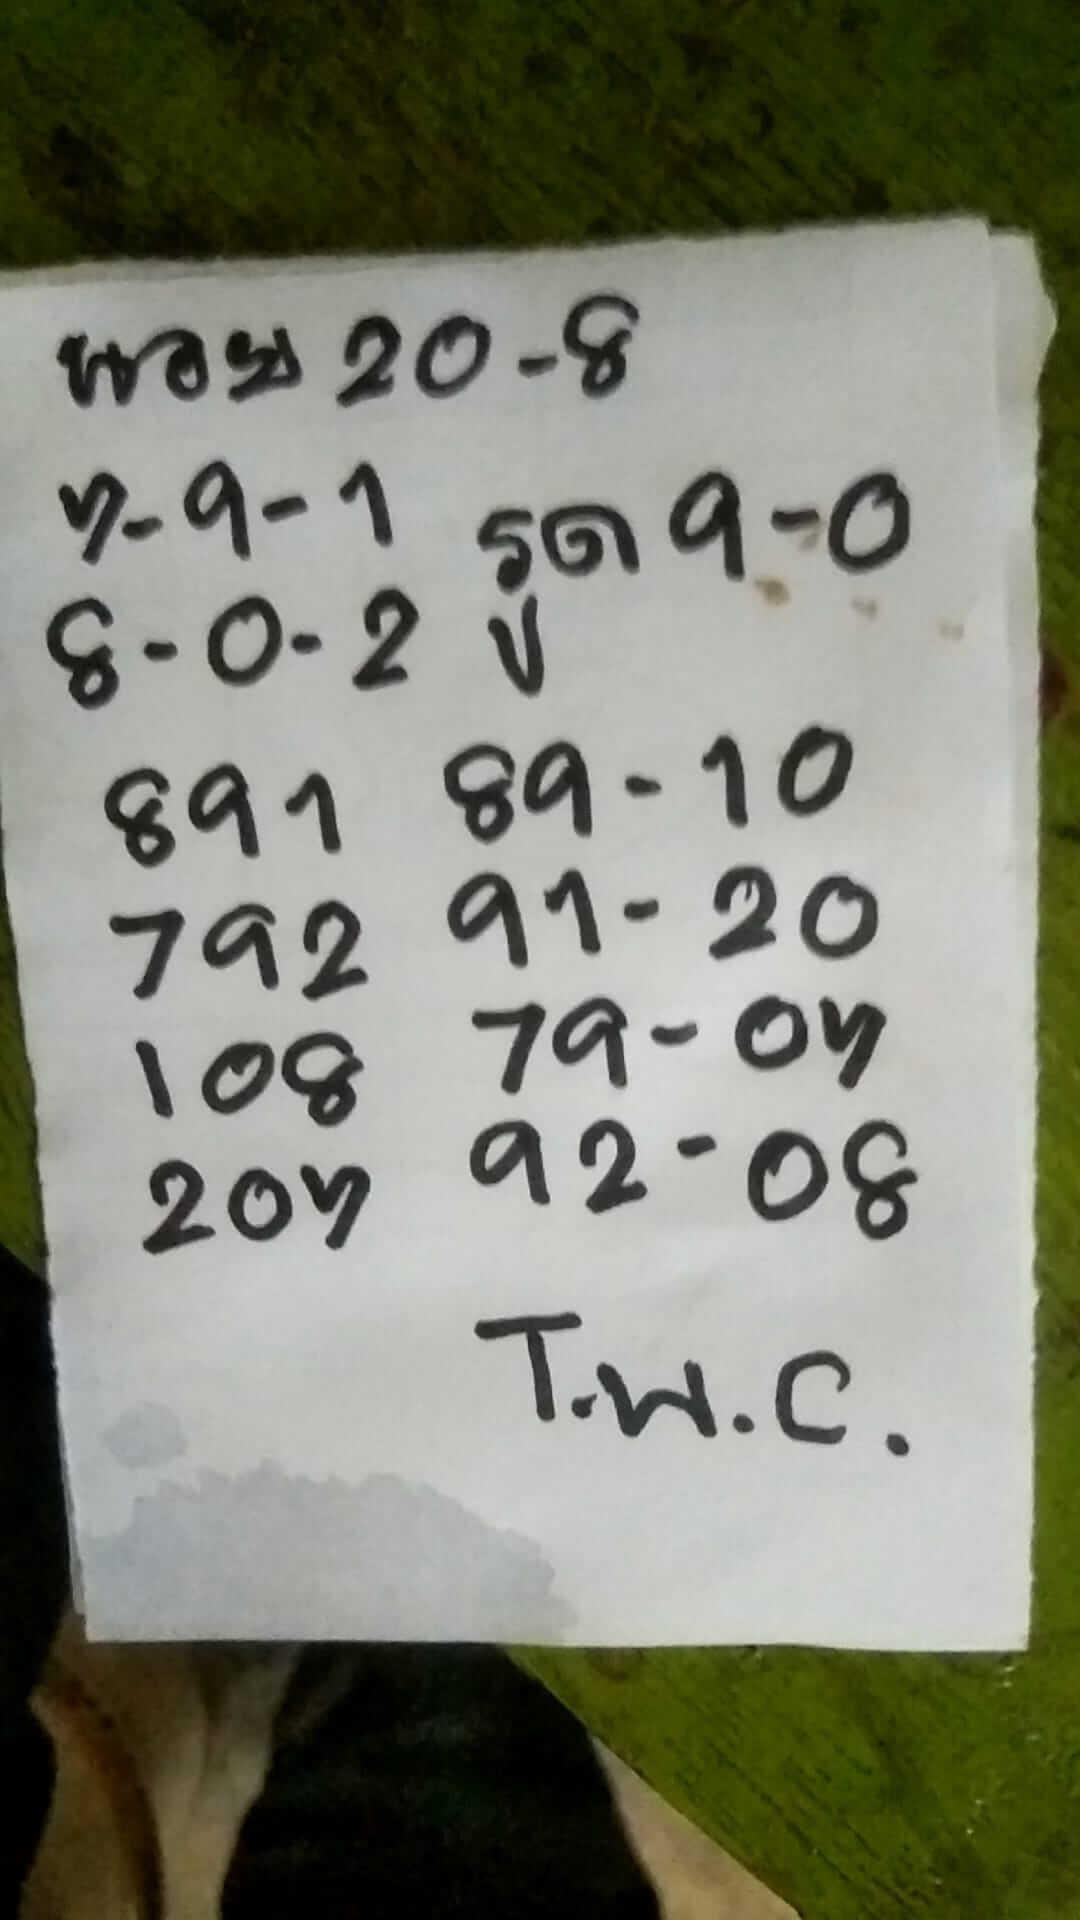 หอย 20-8
7-9-1 รูด 9-0
8-0-2 ปู
891 89-10
792 91-20
108 79-07
207 92-08
T.W.C.